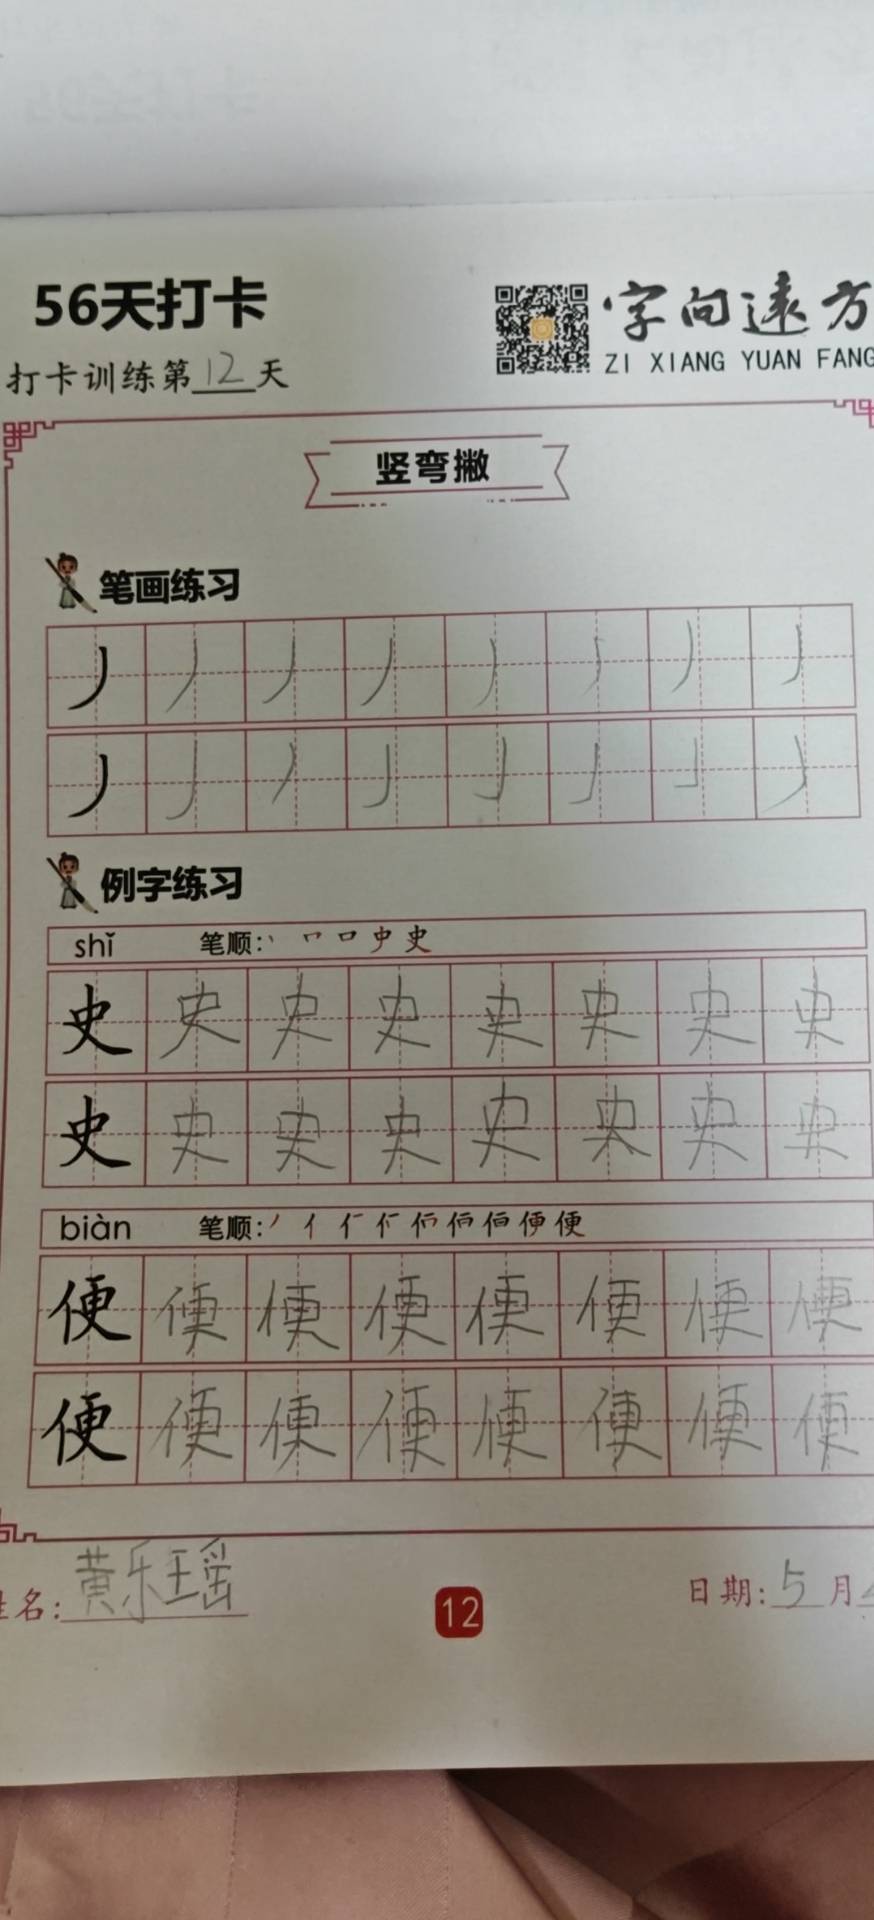 56天打卡
字向遠方
ZI XIANG YUAN FANG
打卡训练第12天
竖弯撇
笔画练习
丿丿丿丿丿丿丿丿
丿丿丿丿丿丿丿丿
例字练习
shǐ 笔顺:丶 𠃍 口 史 史
史史史史史史史史
史史史史史史史史
biàn 笔顺:
便便便便便便便便
便便便便便便便便
姓名:黄乐瑶
12
日期:5月